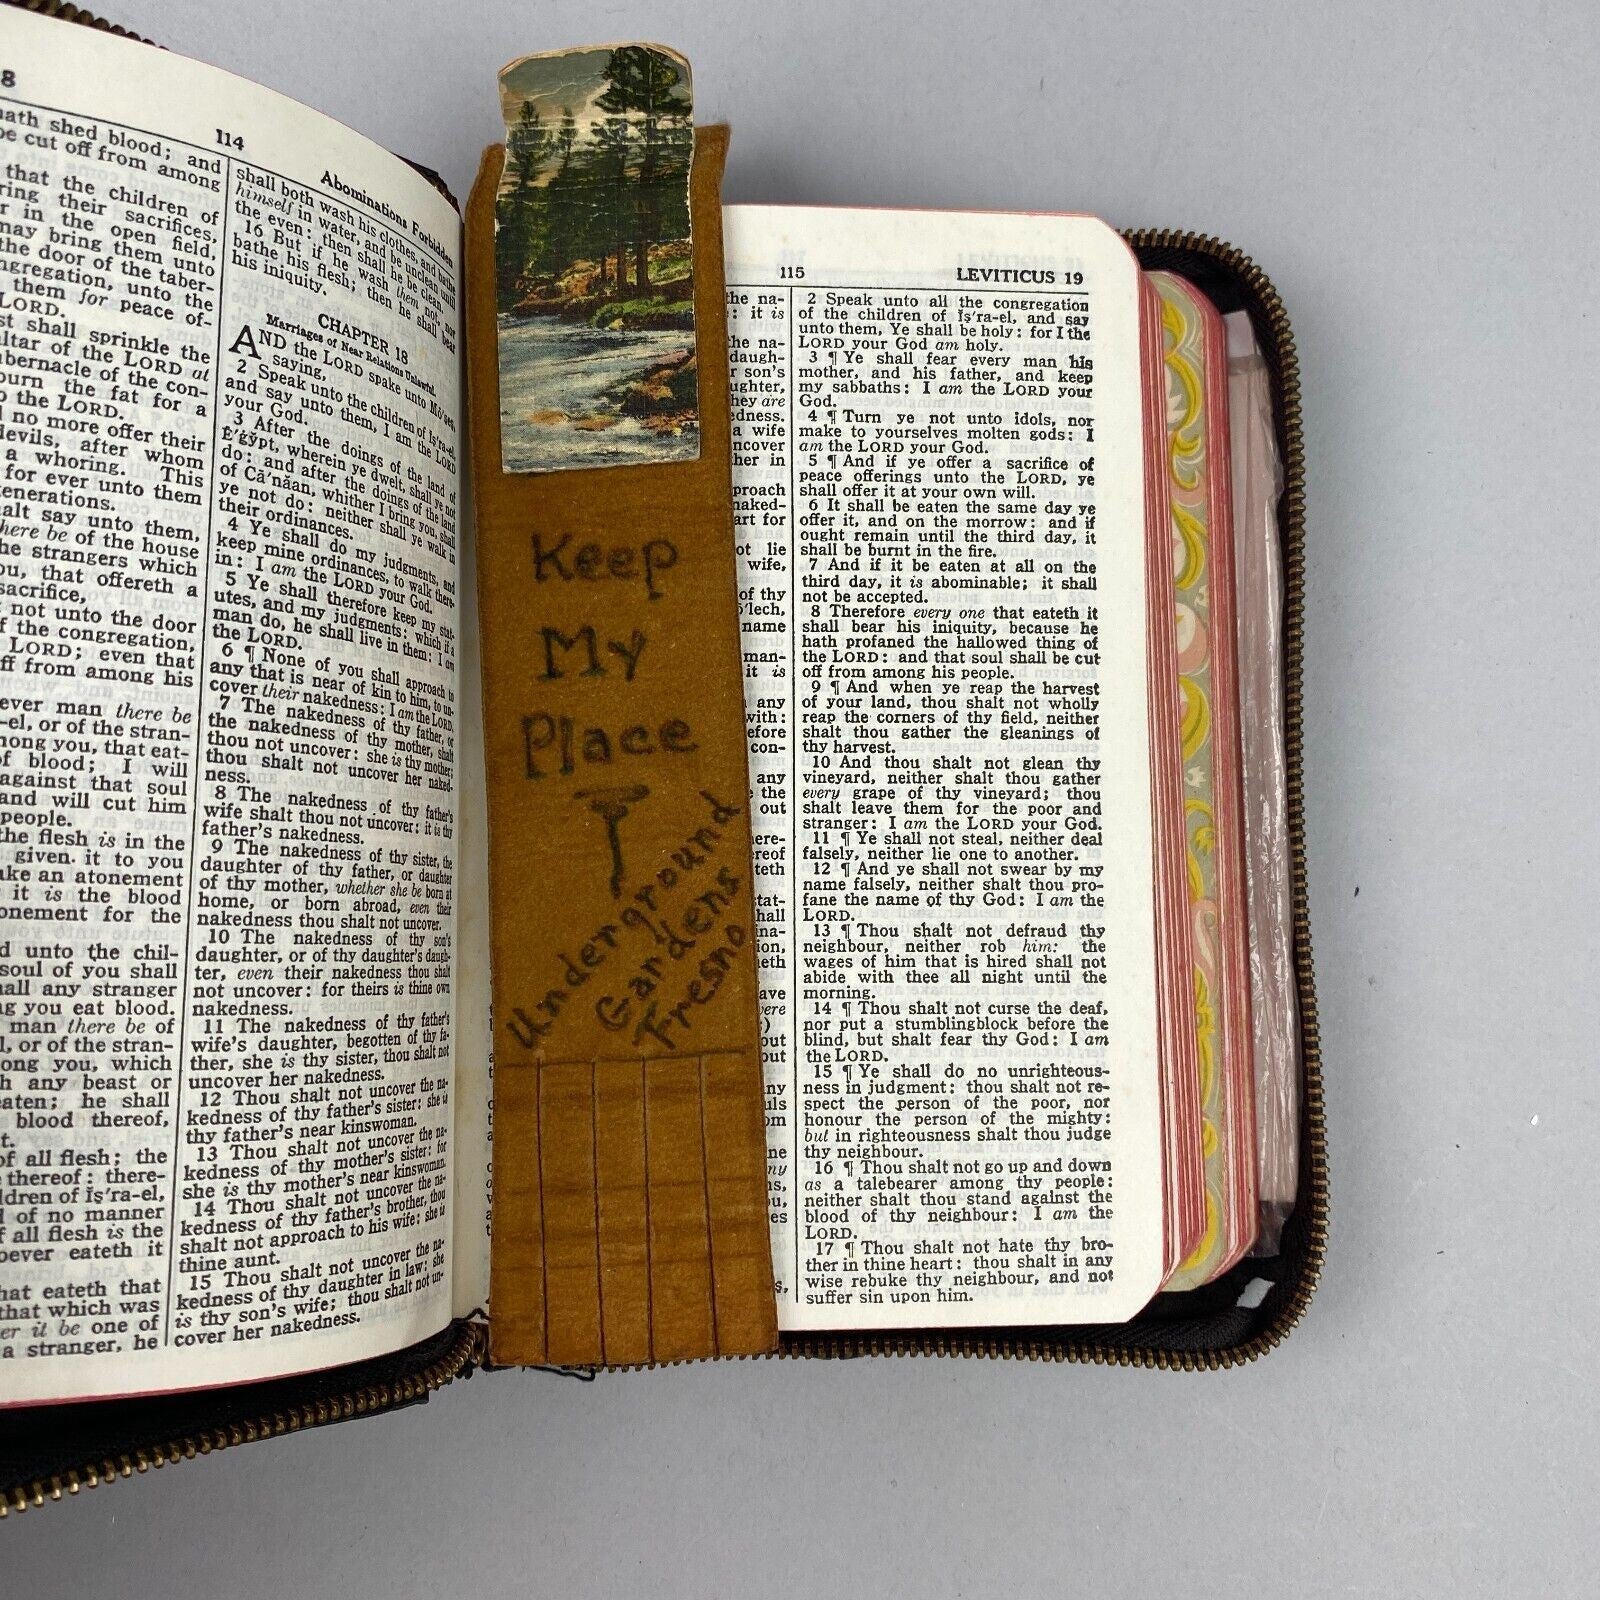 8
hath shed blood; and
be cut off from among
that the children of
ring their sacrifices,
in the open field,
may bring them unto
the door of the taber-
ngregation, unto the
them for peace of-
LORD.
st shall sprinkle the
altar of the LORD at
abernacle of the con-
burn the fat for a
the LORD.
no more offer their
devils, after whom
a whoring. This
for ever unto them
generations.
halt say unto them,
there be of the house
the strangers which
you, that offereth a
sacrifice,
not unto the door
of the congregation,
LORD; even that
off from among his
ever man there be
-el, or of the stran-
mong you, that eat-
of blood; I will
against that soul
and will cut him
people.
the flesh is in the
given it to you
ake an atonement
it is the blood
onement for the
unto the chil-
soul of you shall
hall any stranger
ng you eat blood.
man there be of
l, or of the stran-
ong you, which
h any beast or
eaten; he shall
blood thereof,
t.
of all flesh; the
thereof: there-
ldren of Ĭş'ra-el,
of no manner
f all flesh is the
oever eateth it
hat eateth that
that which was
er it be one of
a stranger, he
114
Abominations Forbidden
shall both wash his clothes, and bathe
himself in water, and be unclean until
the even: then shall he be clean.
16 But if he wash them not, nor
bathe his flesh; then he shall bear
his iniquity.
CHAPTER 18
Marriages of Near Relations Unlawful.
AND the LORD spake unto Mō'ses,
saying,
2 Speak unto the children of Ĭş'ra-el,
and say unto them, I am the LORD
your God.
3 After the doings of the land of
Ē'ġy̆pt, wherein ye dwelt, shall ye not
do: and after the doings of the land
of Cā'năan, whither I bring you, shall
ye not do: neither shall ye walk in
their ordinances.
4 Ye shall do my judgments, and
keep mine ordinances, to walk there-
in: I am the LORD your God.
5 Ye shall therefore keep my stat-
utes, and my judgments: which if a
man do, he shall live in them: I am
the LORD.
6 ¶ None of you shall approach to
any that is near of kin to him, to un-
cover their nakedness: I am the LORD.
7 The nakedness of thy father, or
the nakedness of thy mother, shalt
thou not uncover: she is thy mother;
thou shalt not uncover her naked-
ness.
8 The nakedness of thy father's
wife shalt thou not uncover: it is thy
father's nakedness.
9 The nakedness of thy sister, the
daughter of thy father, or daughter
of thy mother, whether she be born at
home, or born abroad, even their
nakedness thou shalt not uncover.
10 The nakedness of thy son's
daughter, or of thy daughter's daugh-
ter, even their nakedness thou shalt
not uncover: for theirs is thine own
nakedness.
11 The nakedness of thy father's
wife's daughter, begotten of thy fa-
ther, she is thy sister, thou shalt not
uncover her nakedness.
12 Thou shalt not uncover the na-
kedness of thy father's sister: she is
thy father's near kinswoman.
13 Thou shalt not uncover the na-
kedness of thy mother's sister: for
she is thy mother's near kinswoman.
14 Thou shalt not uncover the na-
kedness of thy father's brother, thou
shalt not approach to his wife: she is
thine aunt.
15 Thou shalt not uncover the na-
kedness of thy daughter in law: she
is thy son's wife; thou shalt not un-
cover her nakedness.
Keep
My
Place
Underground
Gardens
Fresno
115
LEVITICUS 19
the na-
: it is
the na-
daugh-
r son's
ughter,
hey are
edness.
a wife
ncover
her in
proach
naked-
art for
ot lie
wife,
of thy
ō'lech,
name
man-
it is
any
with:
efore
con-
any
the
out
here-
ereof
teth
tat-
hall
ina-
ion,
eth
ave
were
)
out
out
ny
uls
om
ne
ny
ns,
ou,
es
2 Speak unto all the congregation
of the children of Ĭş'ra-el, and say
unto them, Ye shall be holy: for I the
LORD your God am holy.
3 ¶ Ye shall fear every man his
mother, and his father, and keep
my sabbaths: I am the LORD your
God.
4 ¶ Turn ye not unto idols, nor
make to yourselves molten gods: I
am the LORD your God.
5 ¶ And if ye offer a sacrifice of
peace offerings unto the LORD, ye
shall offer it at your own will.
6 It shall be eaten the same day ye
offer it, and on the morrow: and if
ought remain until the third day, it
shall be burnt in the fire.
7 And if it be eaten at all on the
third day, it is abominable; it shall
not be accepted.
8 Therefore every one that eateth it
shall bear his iniquity, because he
hath profaned the hallowed thing of
the LORD: and that soul shall be cut
off from among his people.
9 ¶ And when ye reap the harvest
of your land, thou shalt not wholly
reap the corners of thy field, neither
shalt thou gather the gleanings of
thy harvest.
10 And thou shalt not glean thy
vineyard, neither shalt thou gather
every grape of thy vineyard; thou
shalt leave them for the poor and
stranger: I am the LORD your God.
11 ¶ Ye shall not steal, neither deal
falsely, neither lie one to another.
12 ¶ And ye shall not swear by my
name falsely, neither shalt thou pro-
fane the name of thy God: I am the
LORD.
13 ¶ Thou shalt not defraud thy
neighbour, neither rob him: the
wages of him that is hired shall not
abide with thee all night until the
morning.
14 ¶ Thou shalt not curse the deaf,
nor put a stumblingblock before the
blind, but shalt fear thy God: I am
the LORD.
15 ¶ Ye shall do no unrighteous-
ness in judgment: thou shalt not re-
spect the person of the poor, nor
honour the person of the mighty:
but in righteousness shalt thou judge
thy neighbour.
16 ¶ Thou shalt not go up and down
as a talebearer among thy people:
neither shalt thou stand against the
blood of thy neighbour: I am the
LORD.
17 ¶ Thou shalt not hate thy bro-
ther in thine heart: thou shalt in any
wise rebuke thy neighbour, and not
suffer sin upon him.